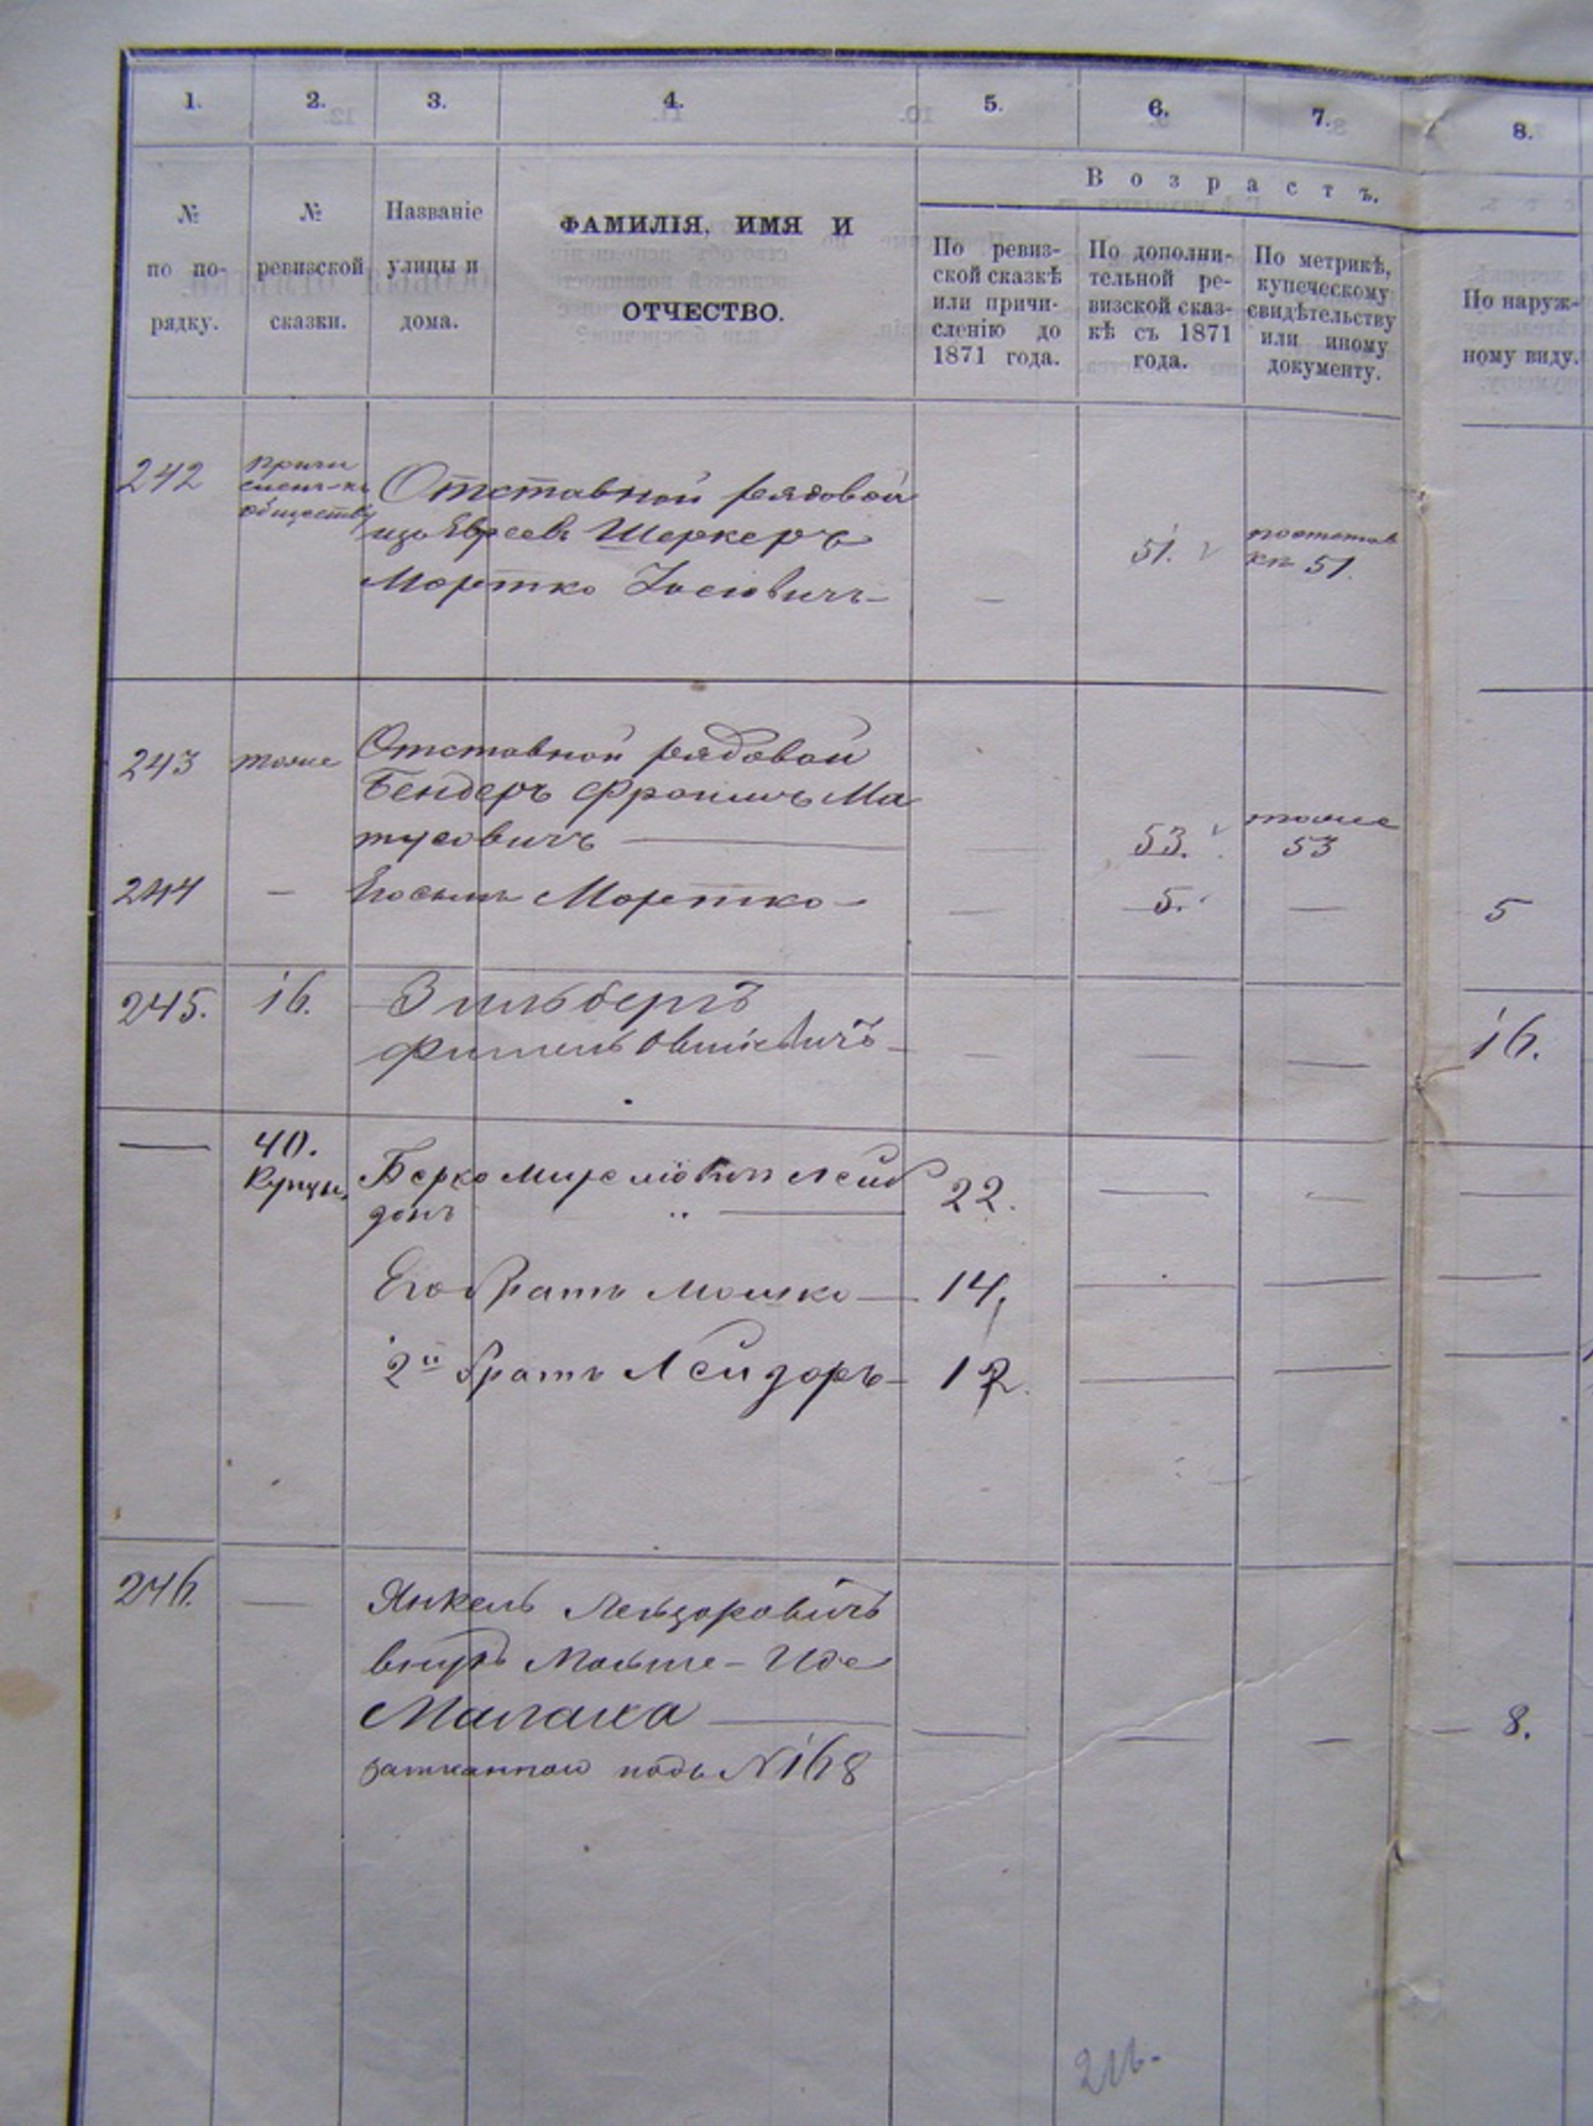 1. 2. 3. 4. 5. 6. 7. 8.
№ по по-рядку.
№ ревизской сказки.
Названіе улицы и дома.
ФАМИЛІЯ, ИМЯ И
ОТЧЕСТВО.
Возрастъ.
По ревиз-
ской сказкѣ
или причи-
сленію до
1871 года.
По дополни-
тельной ре-
визской сказ-
кѣ съ 1871
года.
По метрикѣ,
купеческому
свидѣтельству
или иному
документу.
По наруж-
ному виду.
242 Отставной рядовой
изъ Евреевъ Шеркеръ 51.
Мортко Іосіовичъ — — 51.
обществу
243 тоже Отставной рядовой
Бендеръ Фроимъ Ма
тусовичъ — — 53. тоже 53
244 — Его сынъ Мортко — — 5. — 5
245. 16. Зильбергъ
Фишель — — — — 16.
— 40. Купцы. Берко Лейб
зонъ — 22. — — —
Его братъ Мошко — 14, — — —
2й братъ Лейзоръ — 12. — — —
246. — Янкель Лейзоровичъ
внукъ Мошка-
— — — — — 8.
подъ N 168